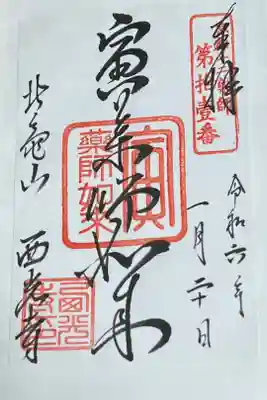 奉拝
第拾壹番
令和六年
一月二十日
寅薬師如来
寅
藥師如来
北亀山
西光寺